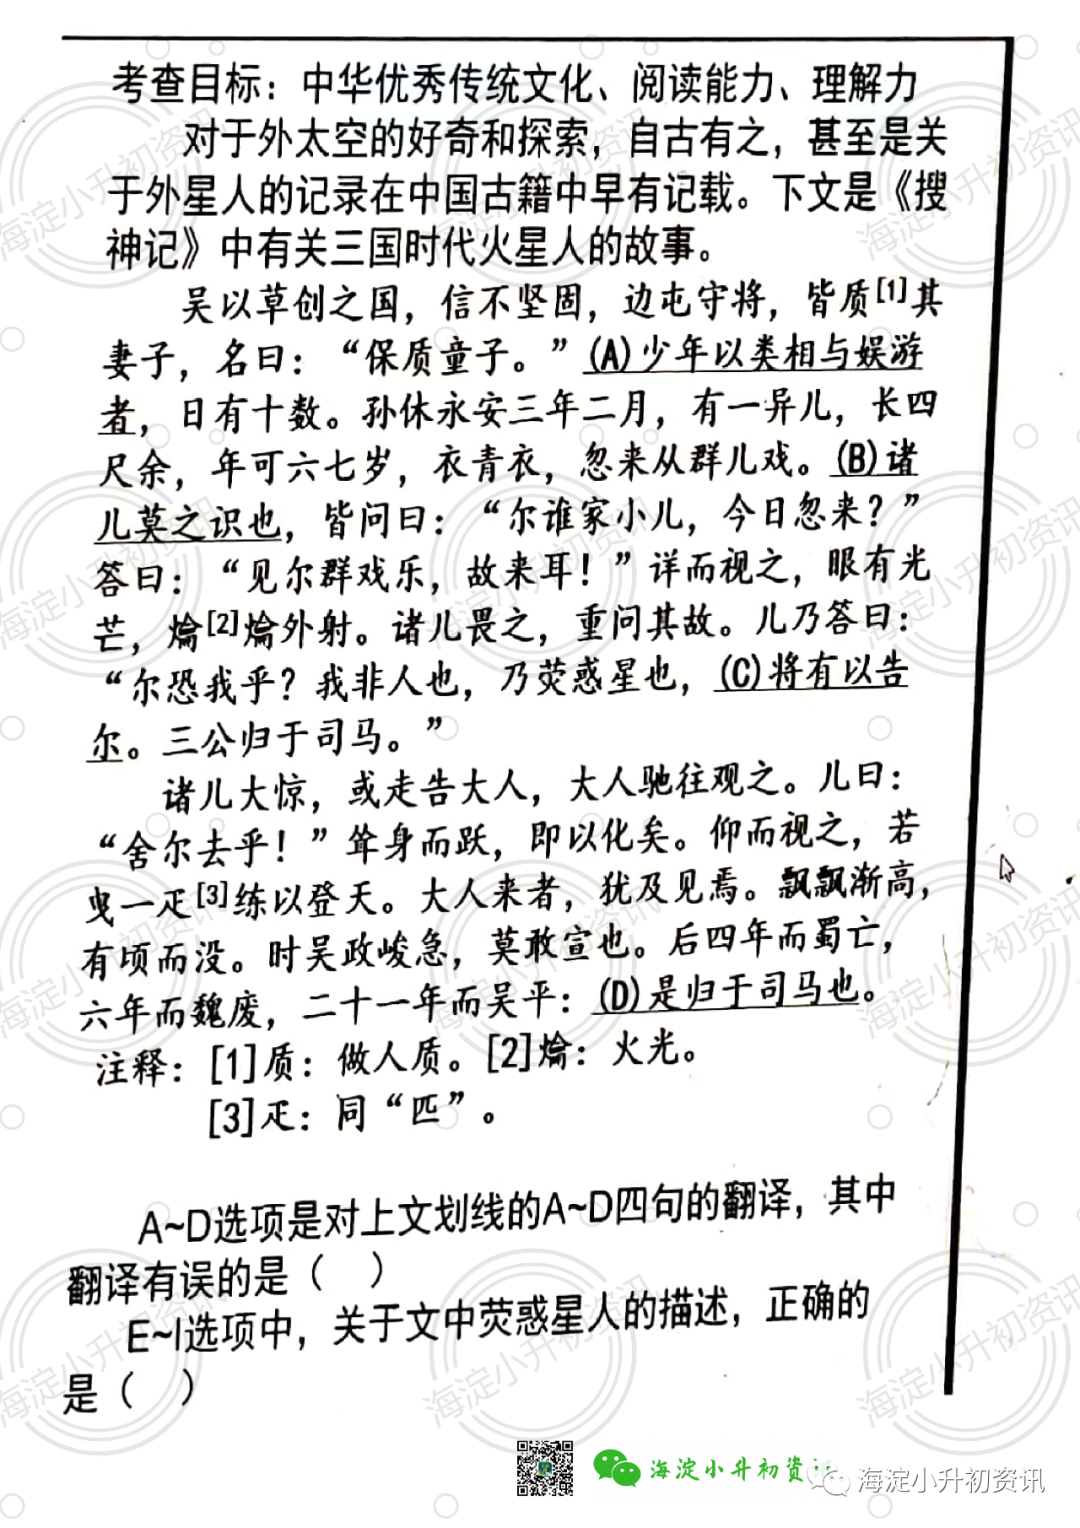 考查目标：中华优秀传统文化、阅读能力、理解力
对于外太空的好奇和探索，自古有之，甚至是关
于外星人的记录在中国古籍中早有记载。下文是《搜
神记》中有关三国时代火星人的故事。
吴以草创之国，信不坚固，边屯守将，皆质[1]其
妻子，名曰：“保质童子。”(A)少年以类相与娱游
者，日有十数。孙休永安三年二月，有一异儿，长四
尺余，年可六七岁，衣青衣，忽来从群儿戏。(B)诸
儿莫之识也，皆问曰：“尔谁家小儿，今日忽来？”
答曰：“见尔群戏乐，故来耳！”详而视之，眼有光
芒，爚[2]爚外射。诸儿畏之，重问其故。儿乃答曰：
“尔恐我乎？我非人也，乃荧惑星也，(C)将有以告
尔。三公归于司马。”
诸儿大惊，或走告大人，大人驰往观之。儿曰：
“舍尔去乎！”耸身而跃，即以化矣。仰而视之，若
曳一疋[3]练以登天。大人来者，犹及见焉。飘飘渐高，
有顷而没。时吴政峻急，莫敢宣也。后四年而蜀亡，
六年而魏废，二十一年而吴平：(D)是归于司马也。
注释：[1]质：做人质。[2]爚：火光。
[3]疋：同“匹”。
A~D选项是对上文划线的A~D四句的翻译，其中
翻译有误的是（ ）
E~I选项中，关于文中荧惑星人的描述，正确的
是（ ）
海淀小升初资讯
海淀小升初资讯